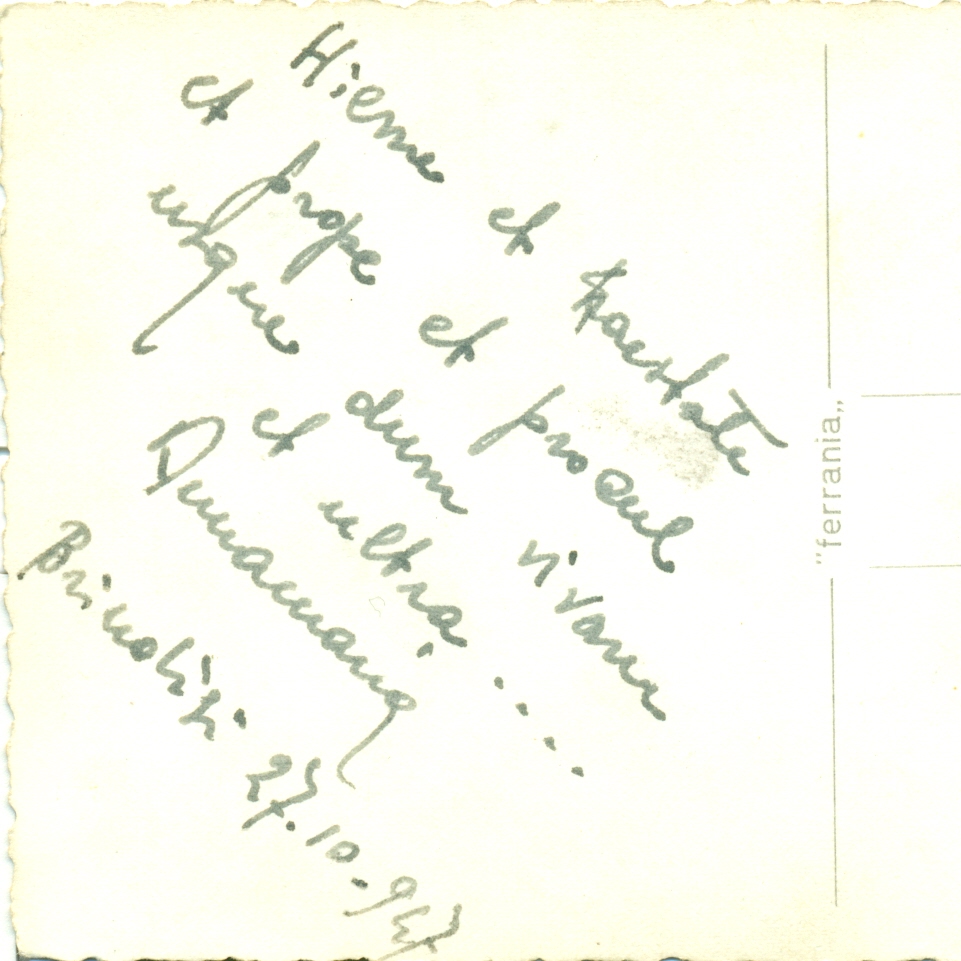 Hieme et aestate
et prope et procul
usque dum vivam
et ultra.....
Brindisi 27.10-947
"ferrania„